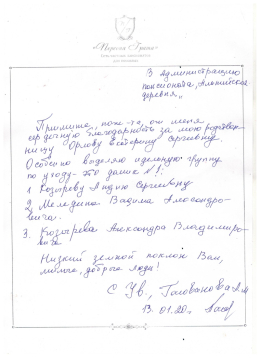 «Первая Грань»
В администрацию
пансионата „Альпийская
деревня„
Примите, пож-та, от меня
сердечную благодарность за мою родствен-
ницу Орлову Екатерину Сергеевну
Особенно выделяю идеальную группу
по уходу
1 Козыреву Лидию Сергеевну
2. Меледина Вадима Александро-
вича.
3. Козырева Александра Владимиро-
вича
Низкий земной поклон Вам,
милые, добрые люди!
С Ув., Голованова А.М
13.01.20г